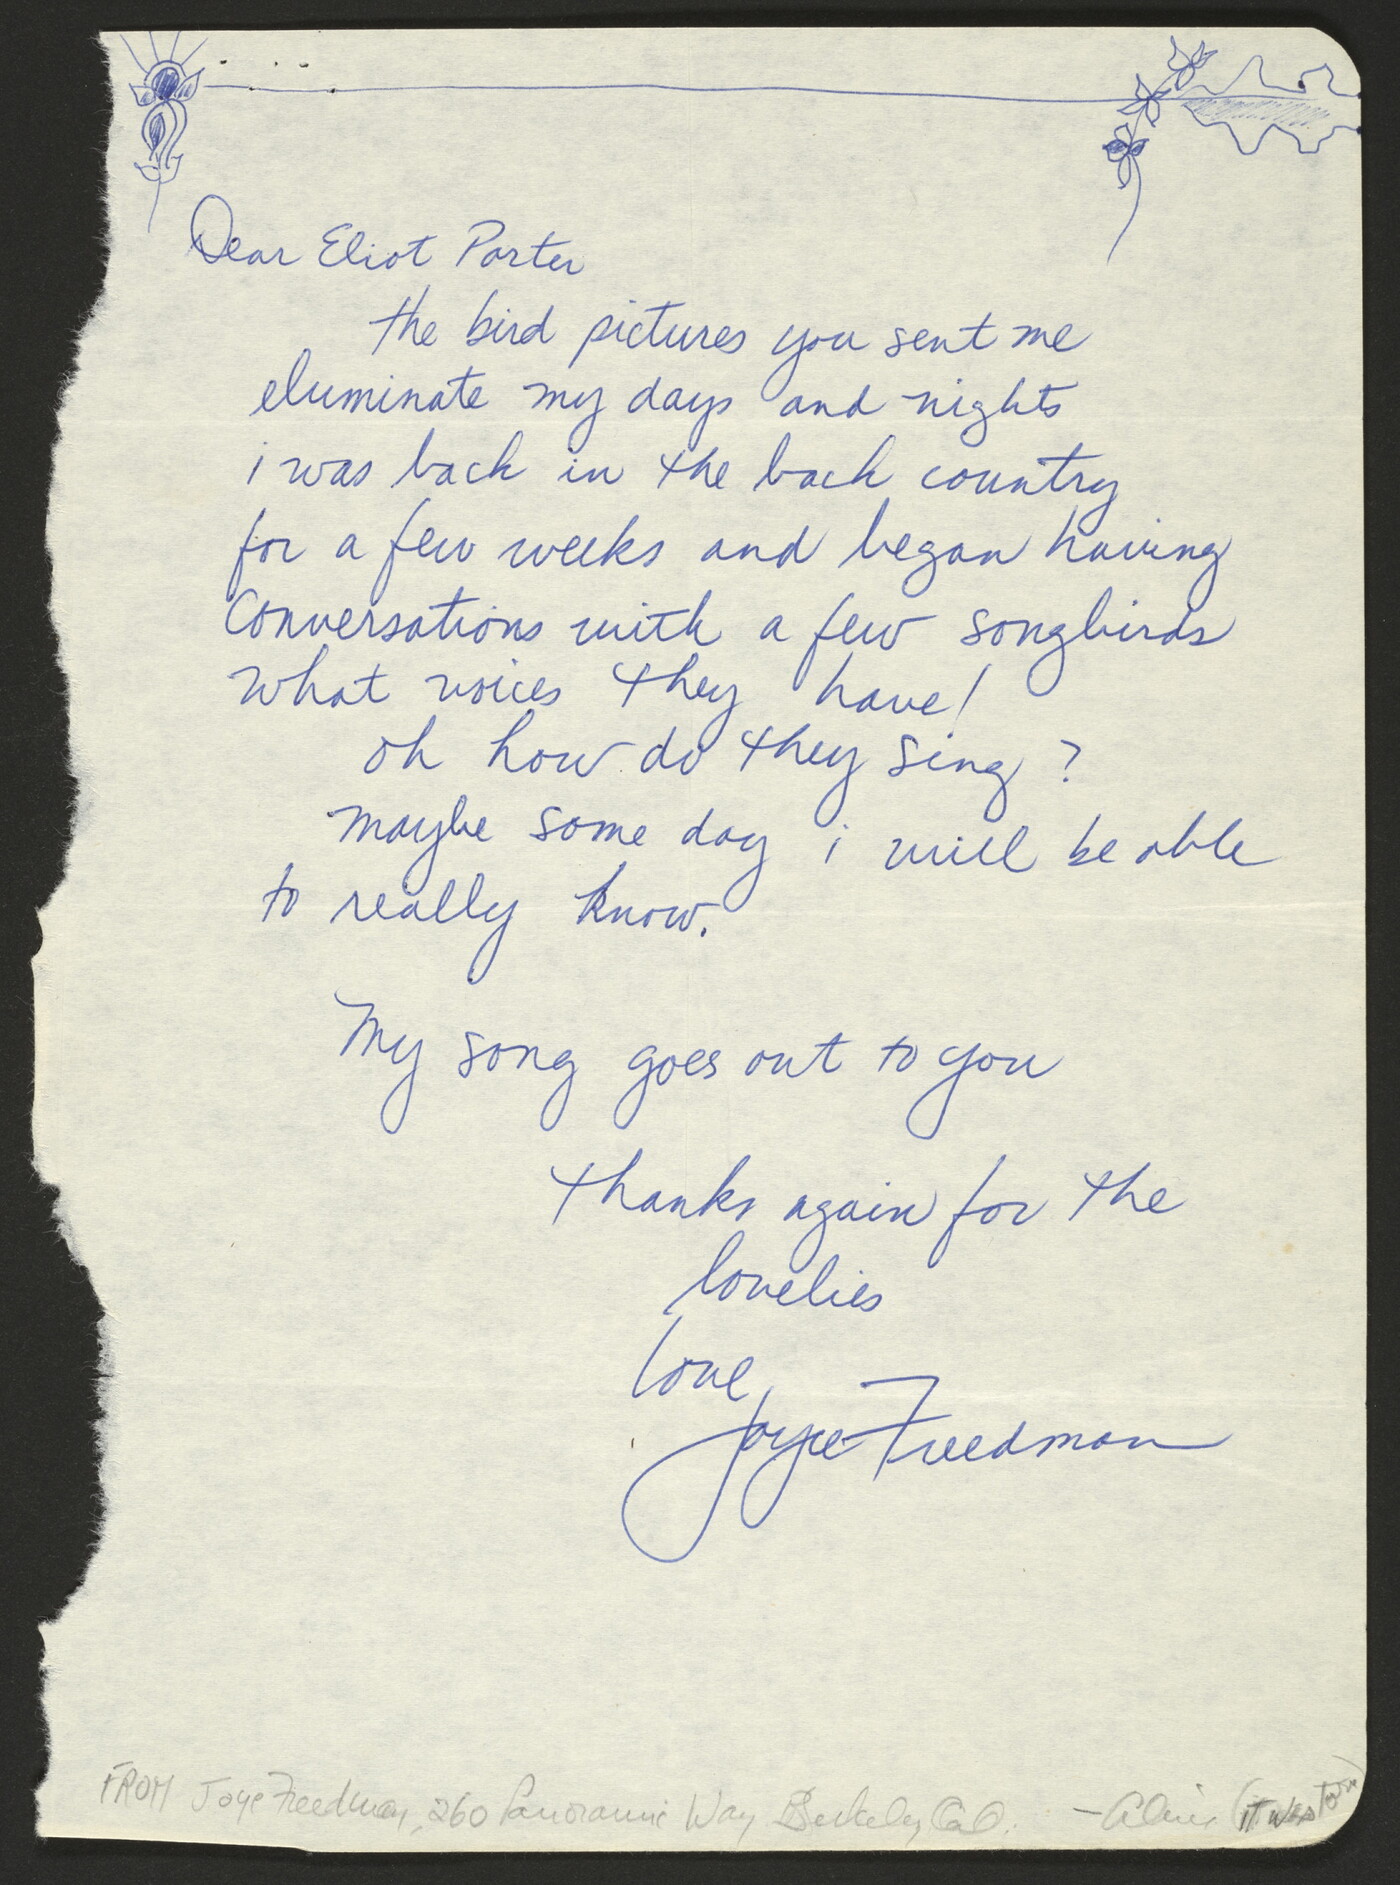 Dear Eliot Porter
the bird pictures you sent me
eluminate my days and nights
i was back in the back country
for a few weeks and began having
Conversations with a few songbirds
what voices they have!
oh how do they sing?
maybe some day i will be able
to really know.
My song goes out to you
thanks again for the
lovelies
love,
Joyce Freedman
FROM Joyce Freedman, 260 Panoramic Way Berkeley, Cal. (IT WAS